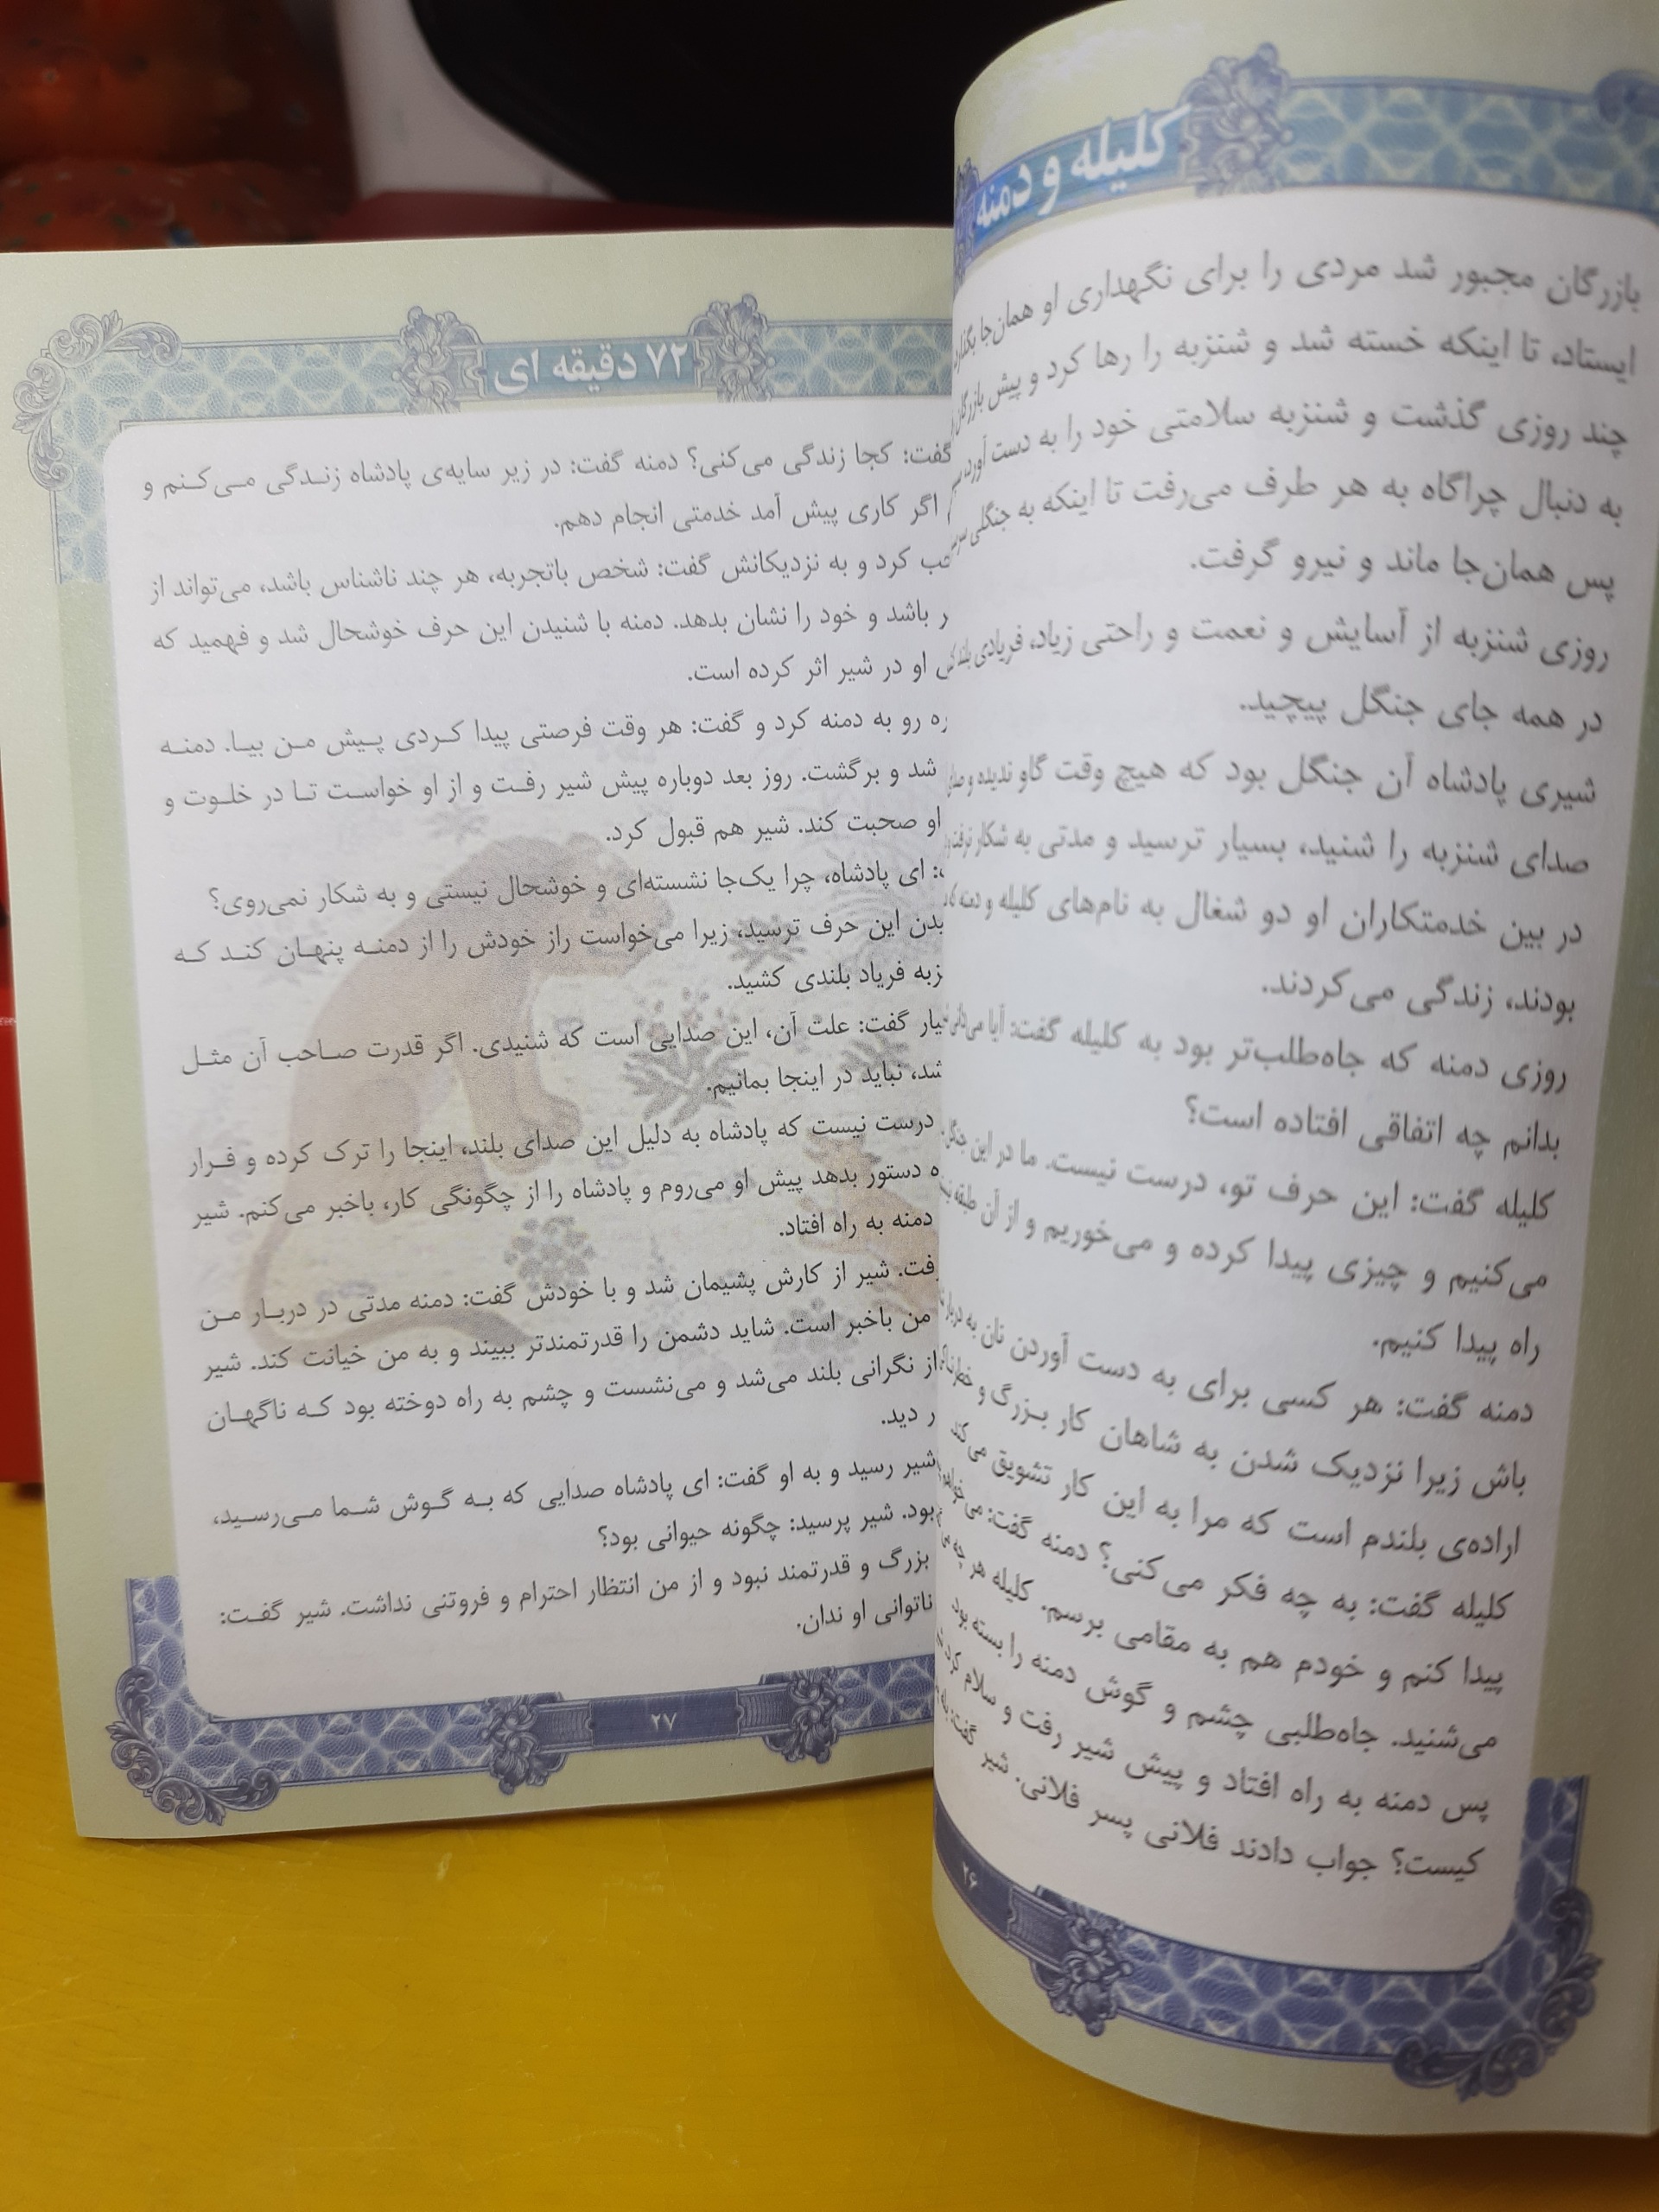 کلیله و دمنه
بازرگان مجبور شد مردی را برای نگهداری او همان‌جا بگذارد
ایستاد، تا اینکه خسته شد و شنزبه را رها کرد و پیش بازرگان
چند روزی گذشت و شنزبه سلامتی خود را به دست آورد
به دنبال چراگاه به هر طرف می‌رفت تا اینکه به جنگلی
پس همان‌جا ماند و نیرو گرفت.
روزی شنزبه از آسایش و نعمت و راحتی زیاد، فریادی بلند
در همه جای جنگل پیچید.
شیری پادشاه آن جنگل بود که هیچ وقت گاو ندیده و
صدای شنزبه را شنید، بسیار ترسید و مدتی به شکار نرفت
در بین خدمتکاران او دو شغال به نام‌های کلیله و دمنه که
بودند، زندگی می‌کردند.
روزی دمنه که جاه‌طلب‌تر بود به کلیله گفت: آیا می‌دانی
بدانم چه اتفاقی افتاده است؟
کلیله گفت: این حرف تو، درست نیست. ما در این جنگل
می‌کنیم و چیزی پیدا کرده و می‌خوریم و از آن طبقه
راه پیدا کنیم.
دمنه گفت: هر کسی برای به دست آوردن نان به دربار
باش زیرا نزدیک شدن به شاهان کار بزرگ و
اراده‌ی بلندم است که مرا به این کار تشویق می‌کند
کلیله گفت: به چه فکر می‌کنی؟ دمنه گفت: می‌خواهم
پیدا کنم و خودم هم به مقامی برسم. کلیله هر چه
می‌شنید. جاه‌طلبی چشم و گوش دمنه را بسته بود
پس دمنه به راه افتاد و پیش شیر رفت و سلام کرد
کیست؟ جواب دادند فلانی پسر فلانی. شیر گفت:
۲۶
۷۲ دقیقه ای
گفت: کجا زندگی می‌کنی؟ دمنه گفت: در زیر سایه‌ی پادشاه زندگی می‌کنم و
اگر کاری پیش آمد خدمتی انجام دهم.
کرد و به نزدیکانش گفت: شخص باتجربه، هر چند ناشناس باشد، می‌تواند از
باشد و خود را نشان بدهد. دمنه با شنیدن این حرف خوشحال شد و فهمید که
او در شیر اثر کرده است.
رو به دمنه کرد و گفت: هر وقت فرصتی پیدا کردی پیش من بیا. دمنه
شد و برگشت. روز بعد دوباره پیش شیر رفت و از او خواست تا در خلوت و
او صحبت کند. شیر هم قبول کرد.
ای پادشاه، چرا یک‌جا نشسته‌ای و خوشحال نیستی و به شکار نمی‌روی؟
این حرف ترسید، زیرا می‌خواست راز خودش را از دمنه پنهان کند که
فریاد بلندی کشید.
گفت: علت آن، این صدایی است که شنیدی. اگر قدرت صاحب آن مثل
نباید در اینجا بمانیم.
درست نیست که پادشاه به دلیل این صدای بلند، اینجا را ترک کرده و فرار
دستور بدهد پیش او می‌روم و پادشاه را از چگونگی کار، باخبر می‌کنم. شیر
دمنه به راه افتاد.
شیر از کارش پشیمان شد و با خودش گفت: دمنه مدتی در دربار من
من باخبر است. شاید دشمن را قدرتمندتر ببیند و به من خیانت کند. شیر
از نگرانی بلند می‌شد و می‌نشست و چشم به راه دوخته بود که ناگهان
دید.
شیر رسید و به او گفت: ای پادشاه صدایی که به گوش شما می‌رسید،
بود. شیر پرسید: چگونه حیوانی بود؟
بزرگ و قدرتمند نبود و از من انتظار احترام و فروتنی نداشت. شیر گفت:
ناتوانی او ندان.
۲۷